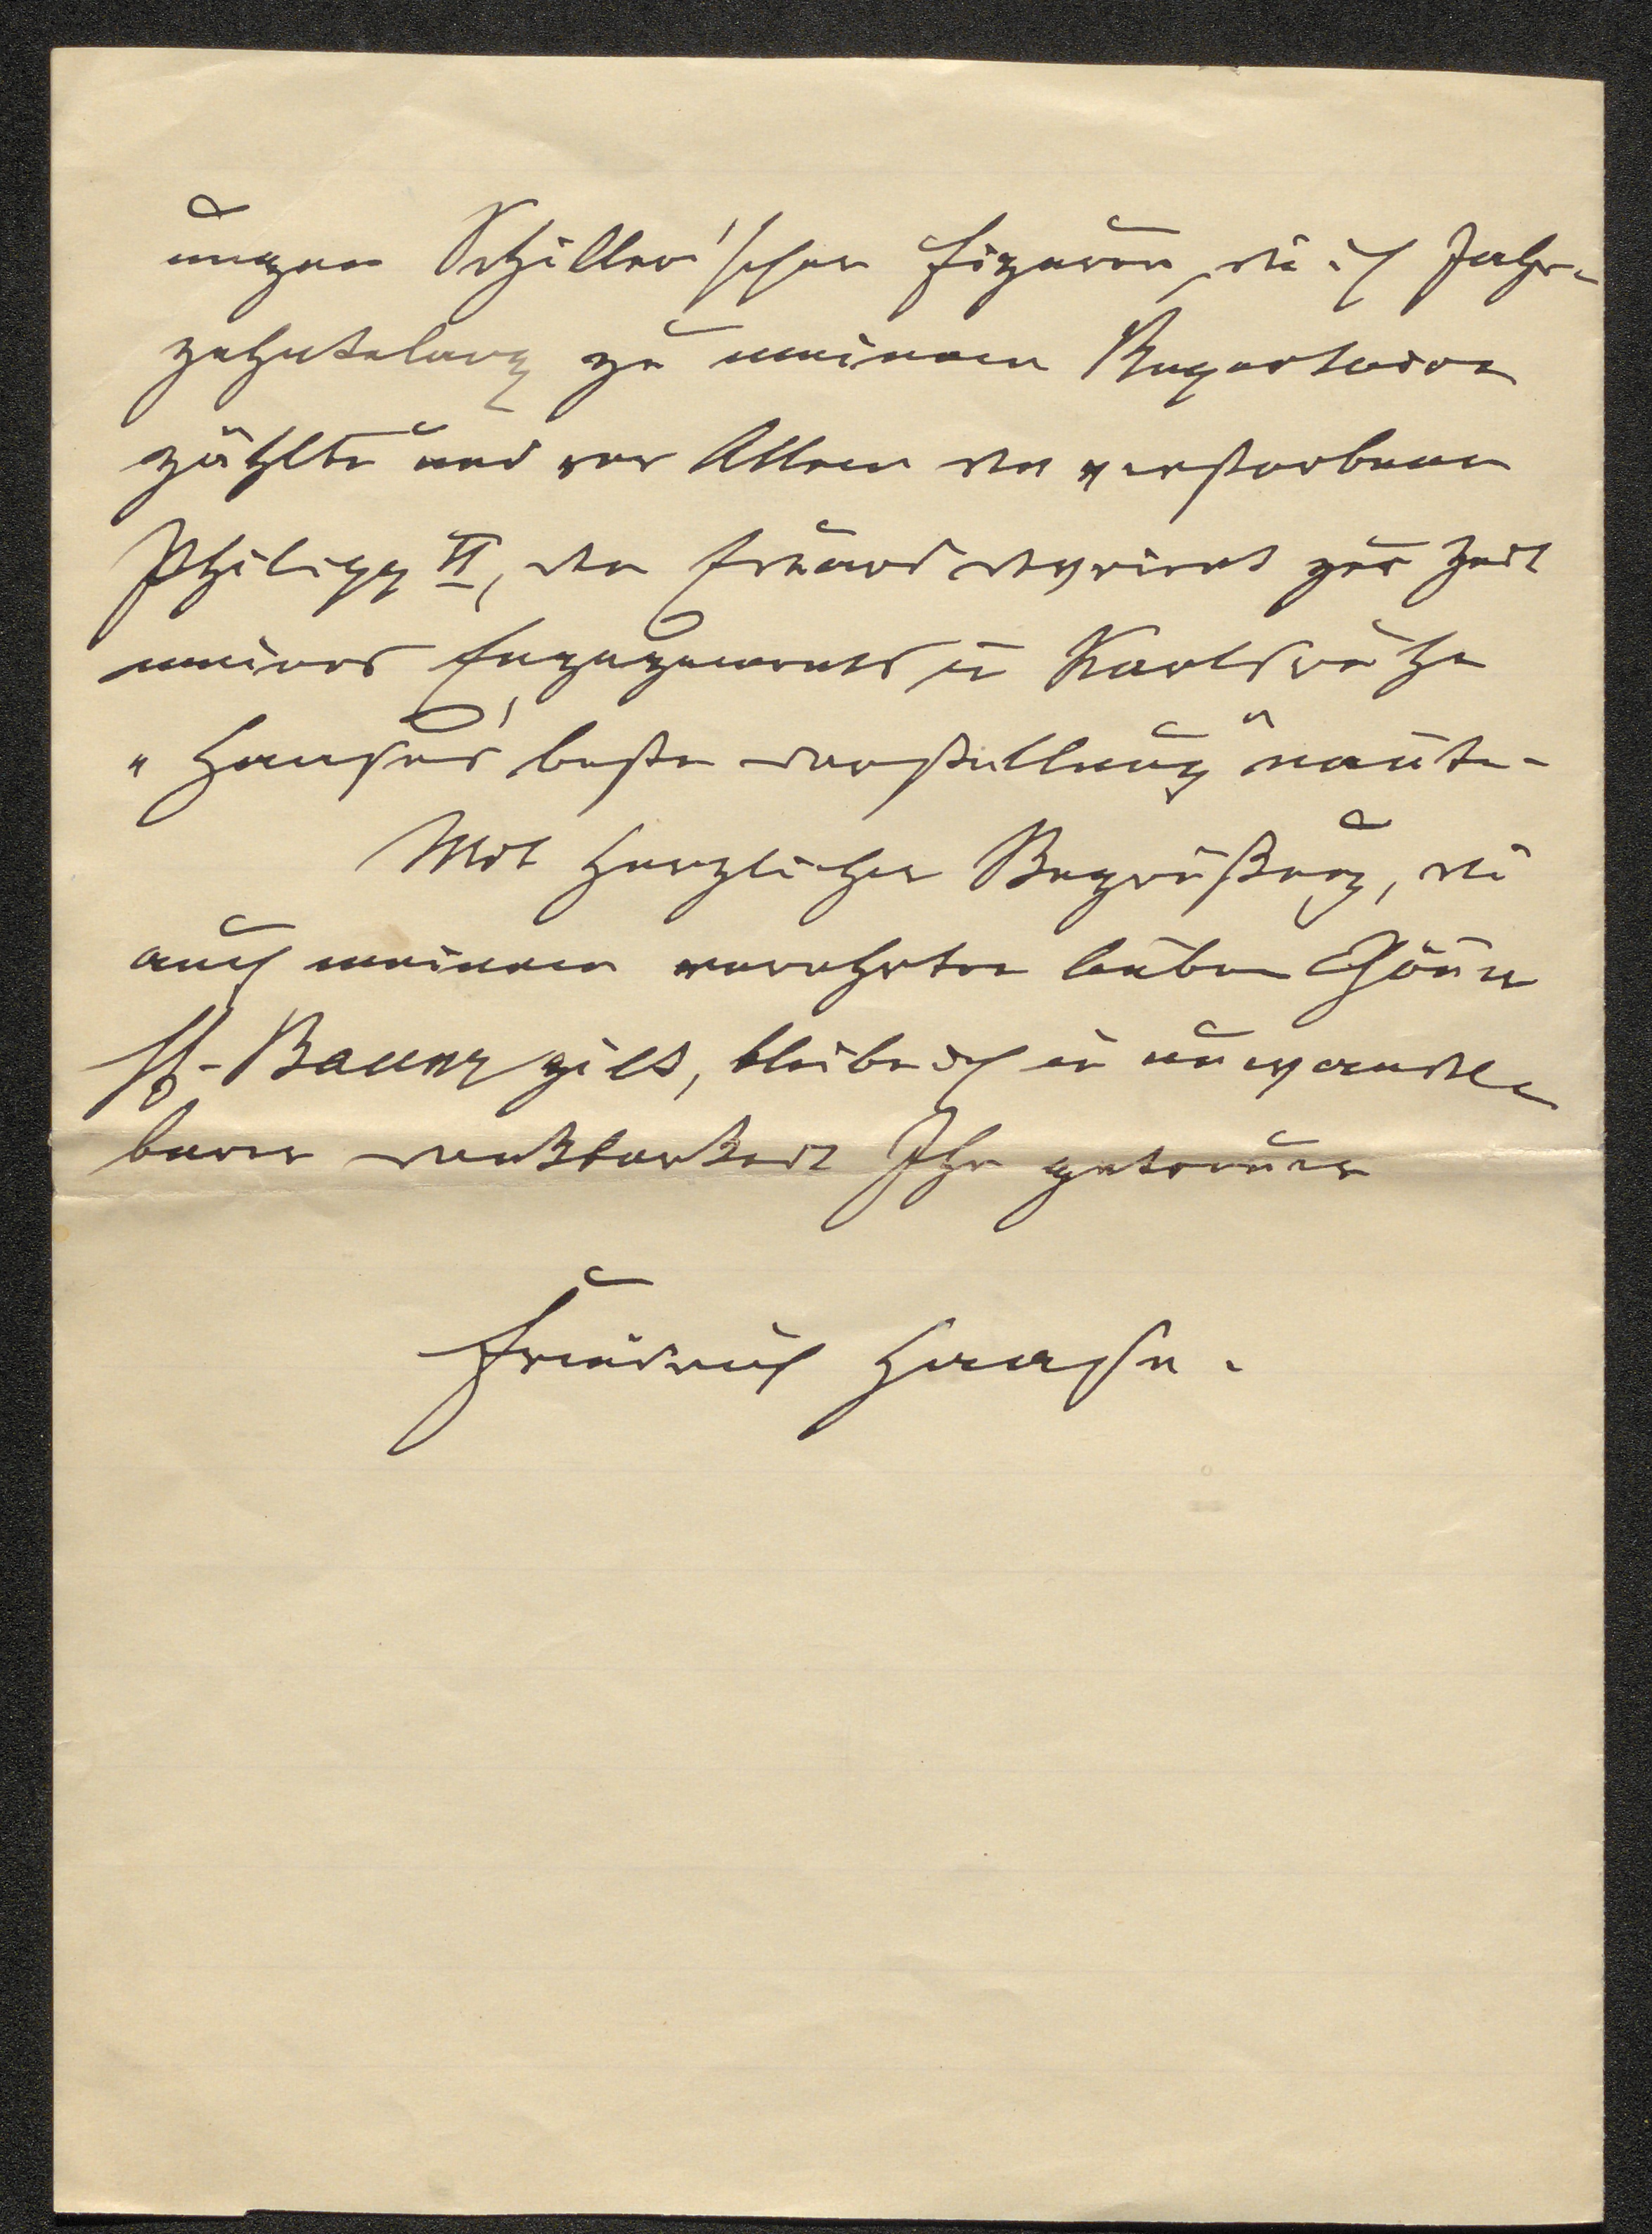 ungen Schiller'scher Figuren, die ich Jahr-
zehntelang zu meinem Repertoire
zählte und vor Allem den verstorbenen
Philipp II, den Eduard Devrient zur Zeit
meines Engagements in Karlsruhe
"Haase's beste Darstellung" nannte.
Mit herzlicher Begrüßung, die
auch meinem verehrten lieben Gönner
Baum gilt, bleibe ich in unwandel-
barer Dankbarkeit Ihr getreuer
Friedrich Haase.